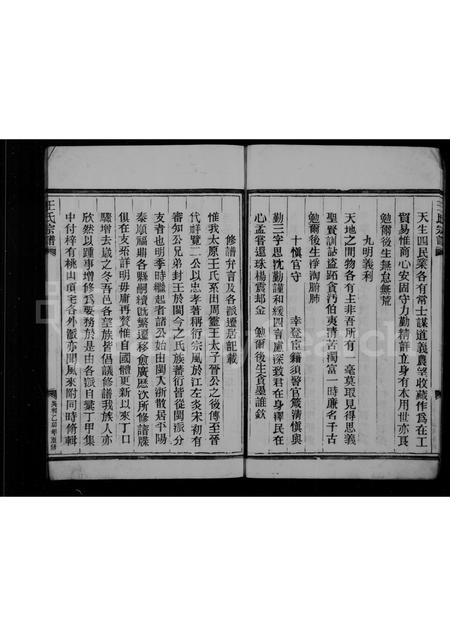 王氏宗譜
天生四民業各有常士謀道義農望收藏作爲在工
貿易惟商心安固守力勤精詳立身有本用世亦良
勉爾後生無怠無荒
九明義利
天地之間物各有主非吾所有一毫莫取見得思義
聖賢訓誌盜跖貪汚伯夷清苦濁富一時廉名千古
勉爾後生淨淘腑肺
十愼官守
幸登宦籍須警官箴清愼與
勤三字思沈勤謹和緩四音風深致君在身澤民在
心孟嘗還珠楊震却金 勉爾後生貪墨誰欽
修譜弁言及各派遷居記載
惟我太原王氏系出周靈王太子晉公之後傳至晉
代群覽二公以忠孝著稱衍宗風於江左炎宋初有
審知公兄弟封王於閩今之氏族蕃衍皆從閩派分
支者也明季時繼起者諸公始由閩入浙散居平陽
泰順福鼎各縣嗣續旣繁遷移愈廣歷次所修譜牒
俱在支派詳明毋庸再贅惟自國體更新以來丁口
驟增去歲之冬吾邑各望族皆倡議修譜我族人亦
欣然以踵事增修爲要務於是由各派自彙丁甲集
中付梓有桃山項宅各外派亦聞風來附同時脩輯
王氏宗譜